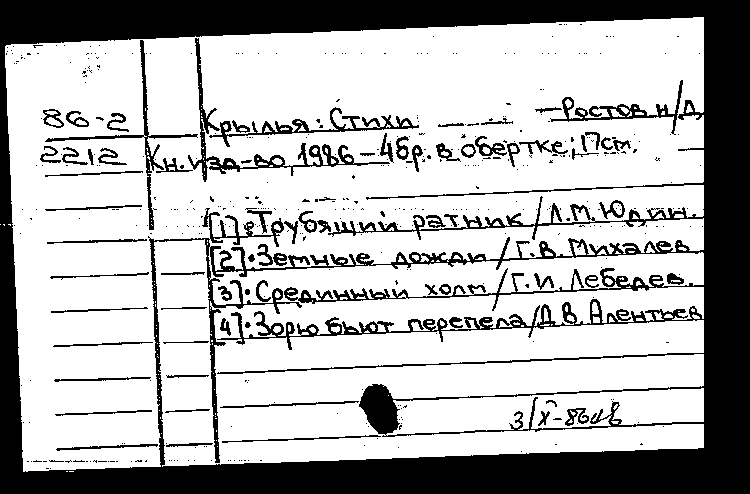 86-2 Крылья: Стихи — Ростов н/Д
2212 Кн. изд-во, 1986 – 4бр. в обертке; 17см.
[1]: Трубящий ратник / Л.М. Юдин.
[2]: Земные дожди / Г.В. Михалев
[3]: Срединный холм / Г.И. Лебедев.
[4]: Зорю бьют перепела / Д.В. Алентьев
3/X-86